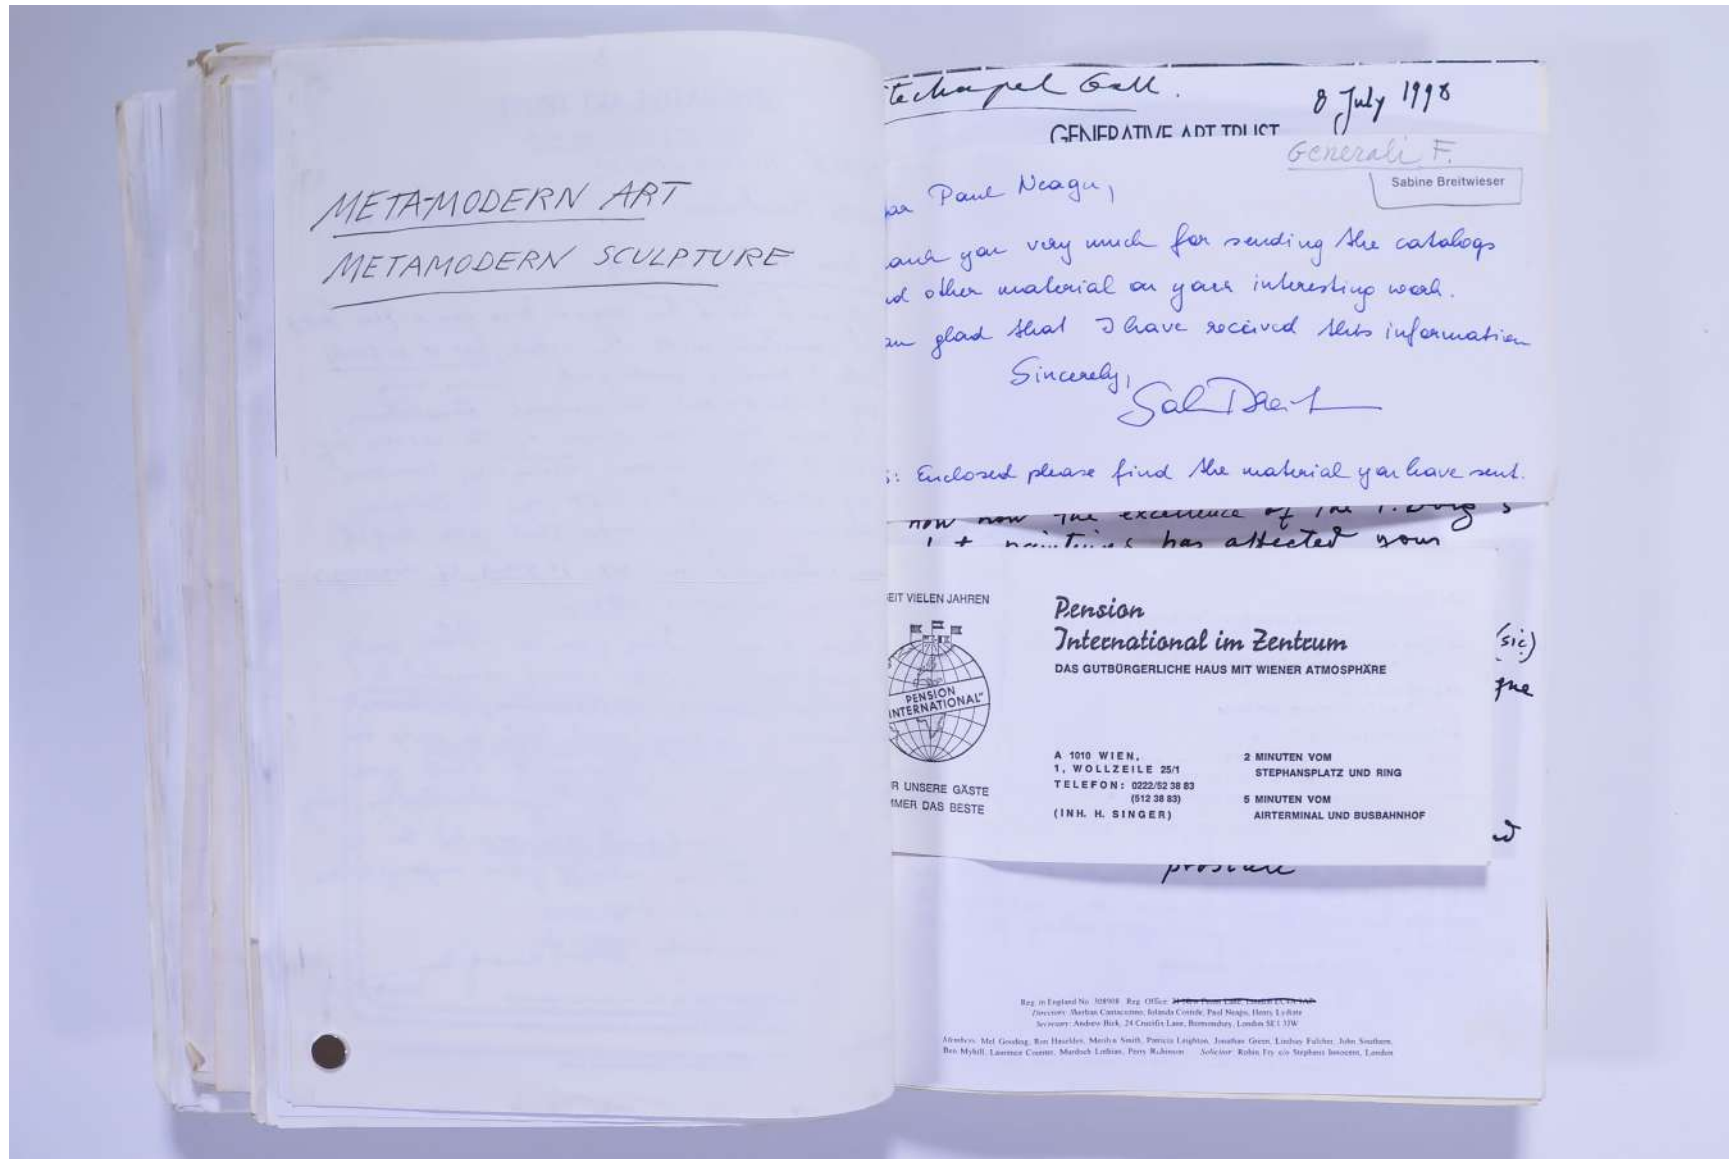 META-MODERN ART
METAMODERN SCULPTURE
techapel Gall.
8 July 1998
GENERATIVE ART TRUST
Generali F.
Sabine Breitwieser
ear Paul Neagu,
ank you very much for sending the catalogs
nd other material on your interesting work.
am glad that I have received this information
Sincerely,
S: Enclosed please find the material you have sent.
how now the excellence of the
paintings has affected your
(sic)
EIT VIELEN JAHREN
PENSION
INTERNATIONAL"
R UNSERE GÄSTE
MMER DAS BESTE
Pension
International im Zentrum
DAS GUTBÜRGERLICHE HAUS MIT WIENER ATMOSPHÄRE
A 1010 WIEN,
1, WOLLZEILE 25/1
TELEFON: 0222/52 38 83
(512 38 83)
(INH. H. SINGER)
2 MINUTEN VOM
STEPHANSPLATZ UND RING
5 MINUTEN VOM
AIRTERMINAL UND BUSBAHNHOF
Reg. in England No. 308908 Reg. Office
Directors: Sherban Cantacuzino, Iolanda Costide, Paul Neagu, Henry Lydiate
Secretary: Andrew Bick, 24 Crucifix Lane, Bermondsey, London SE1 3JW
Members: Mel Gooding, Ron Haselden, Marilyn Smith, Patricia Leighton, Jonathan Green, Lindsay Fulcher, John Southern,
Ben Myhill, Laurence Coerner, Murdoch Lothian, Perry Robinson Solicitor: Robin Fry c/o Stephens Innocent, London